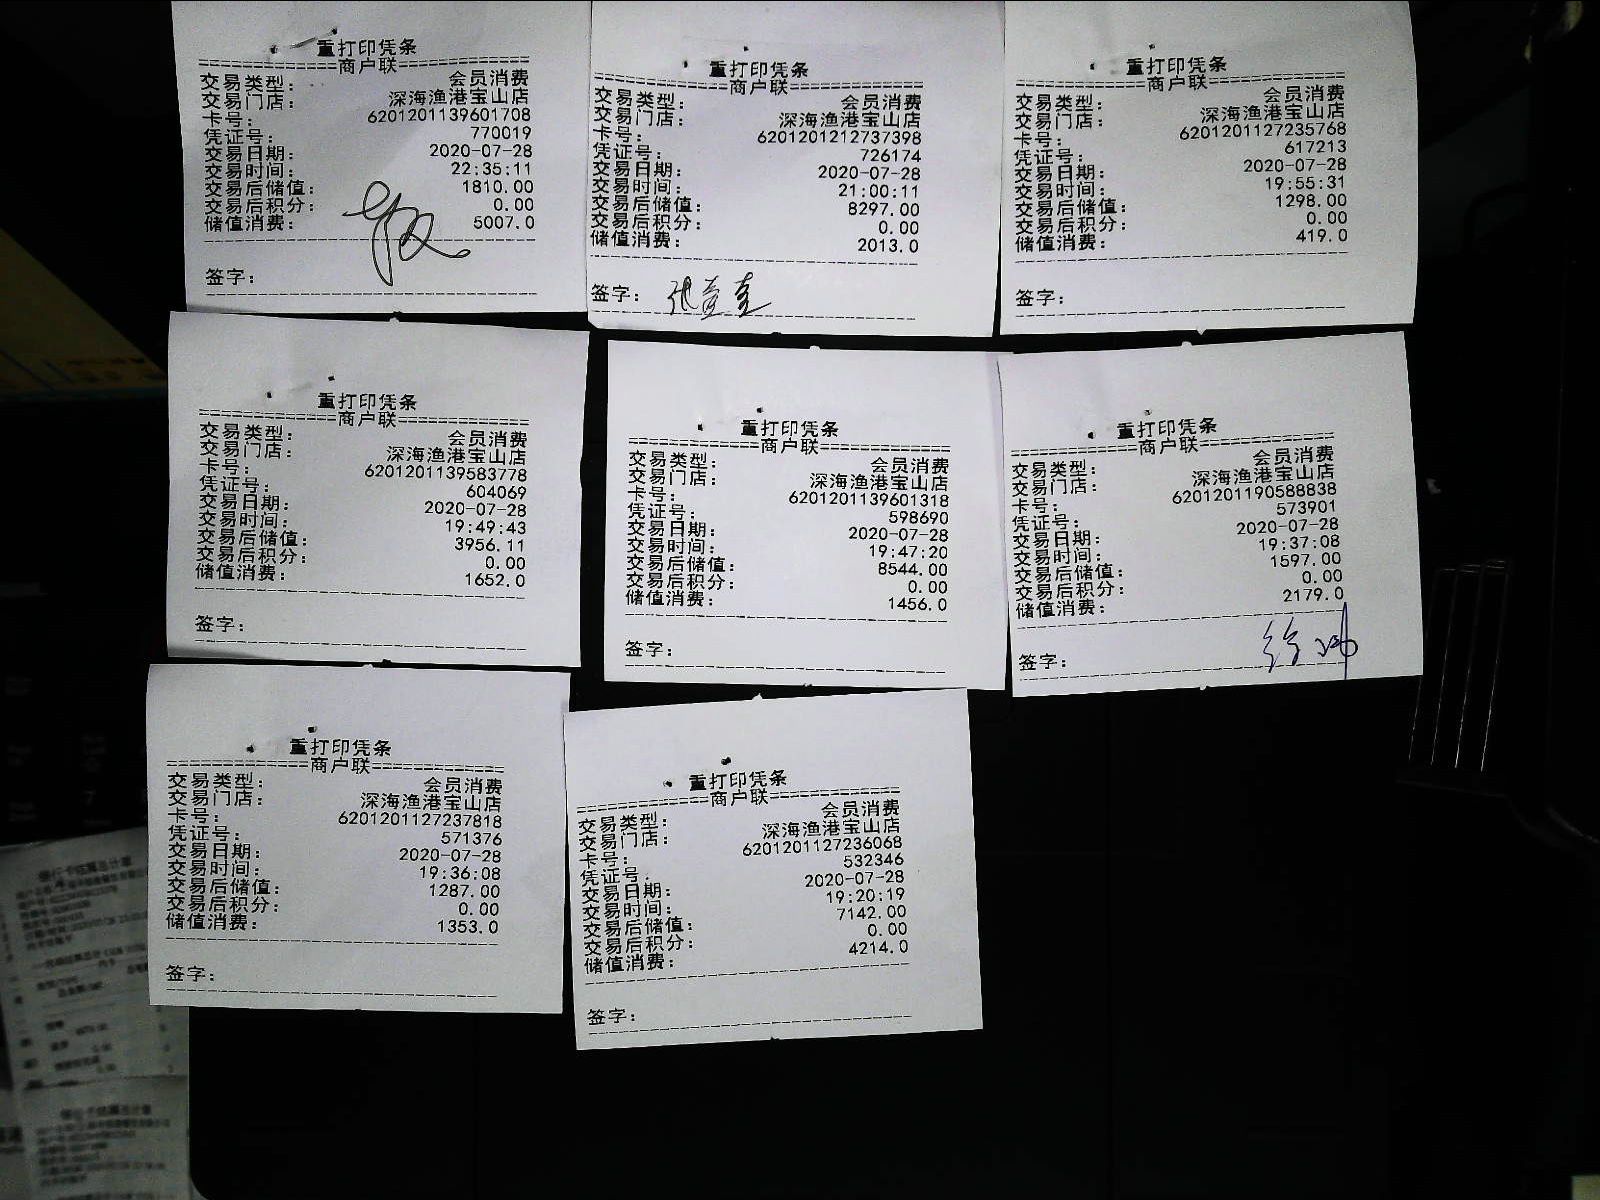 重打印凭条
================商户联================
交易类型： 会员消费
交易门店： 深海渔港宝山店
卡号： 6201201139601708
凭证号： 770019
交易日期： 2020-07-28
交易时间： 22:35:11
交易后储值： 1810.00
交易后积分： 0.00
储值消费： 5007.0
签字：
重打印凭条
================商户联================
交易类型： 会员消费
交易门店： 深海渔港宝山店
卡号： 6201201212737398
凭证号： 726174
交易日期： 2020-07-28
交易时间： 21:00:11
交易后储值： 8297.00
交易后积分： 0.00
储值消费： 2013.0
签字：
重打印凭条
================商户联================
交易类型： 会员消费
交易门店： 深海渔港宝山店
卡号： 6201201127235768
凭证号： 617213
交易日期： 2020-07-28
交易时间： 19:55:31
交易后储值： 1298.00
交易后积分： 0.00
储值消费： 419.0
签字：
重打印凭条
================商户联================
交易类型： 会员消费
交易门店： 深海渔港宝山店
卡号： 6201201139583778
凭证号： 604069
交易日期： 2020-07-28
交易时间： 19:49:43
交易后储值： 3956.11
交易后积分： 0.00
储值消费： 1652.0
签字：
重打印凭条
================商户联================
交易类型： 会员消费
交易门店： 深海渔港宝山店
卡号： 6201201139601318
凭证号： 598690
交易日期： 2020-07-28
交易时间： 19:47:20
交易后储值： 8544.00
交易后积分： 0.00
储值消费： 1456.0
签字：
重打印凭条
================商户联================
交易类型： 会员消费
交易门店： 深海渔港宝山店
卡号： 6201201190588838
凭证号： 573901
交易日期： 2020-07-28
交易时间： 19:37:08
交易后储值： 1597.00
交易后积分： 0.00
储值消费： 2179.0
签字：
重打印凭条
================商户联================
交易类型： 会员消费
交易门店： 深海渔港宝山店
卡号： 6201201127237818
凭证号： 571376
交易日期： 2020-07-28
交易时间： 19:36:08
交易后储值： 1287.00
交易后积分： 0.00
储值消费： 1353.0
签字：
重打印凭条
================商户联================
交易类型： 会员消费
交易门店： 深海渔港宝山店
卡号： 6201201127236068
凭证号． 532346
交易日期： 2020-07-28
交易时间： 19:20:19
交易后储值： 7142.00
交易后积分： 0.00
储值消费： 4214.0
签字：